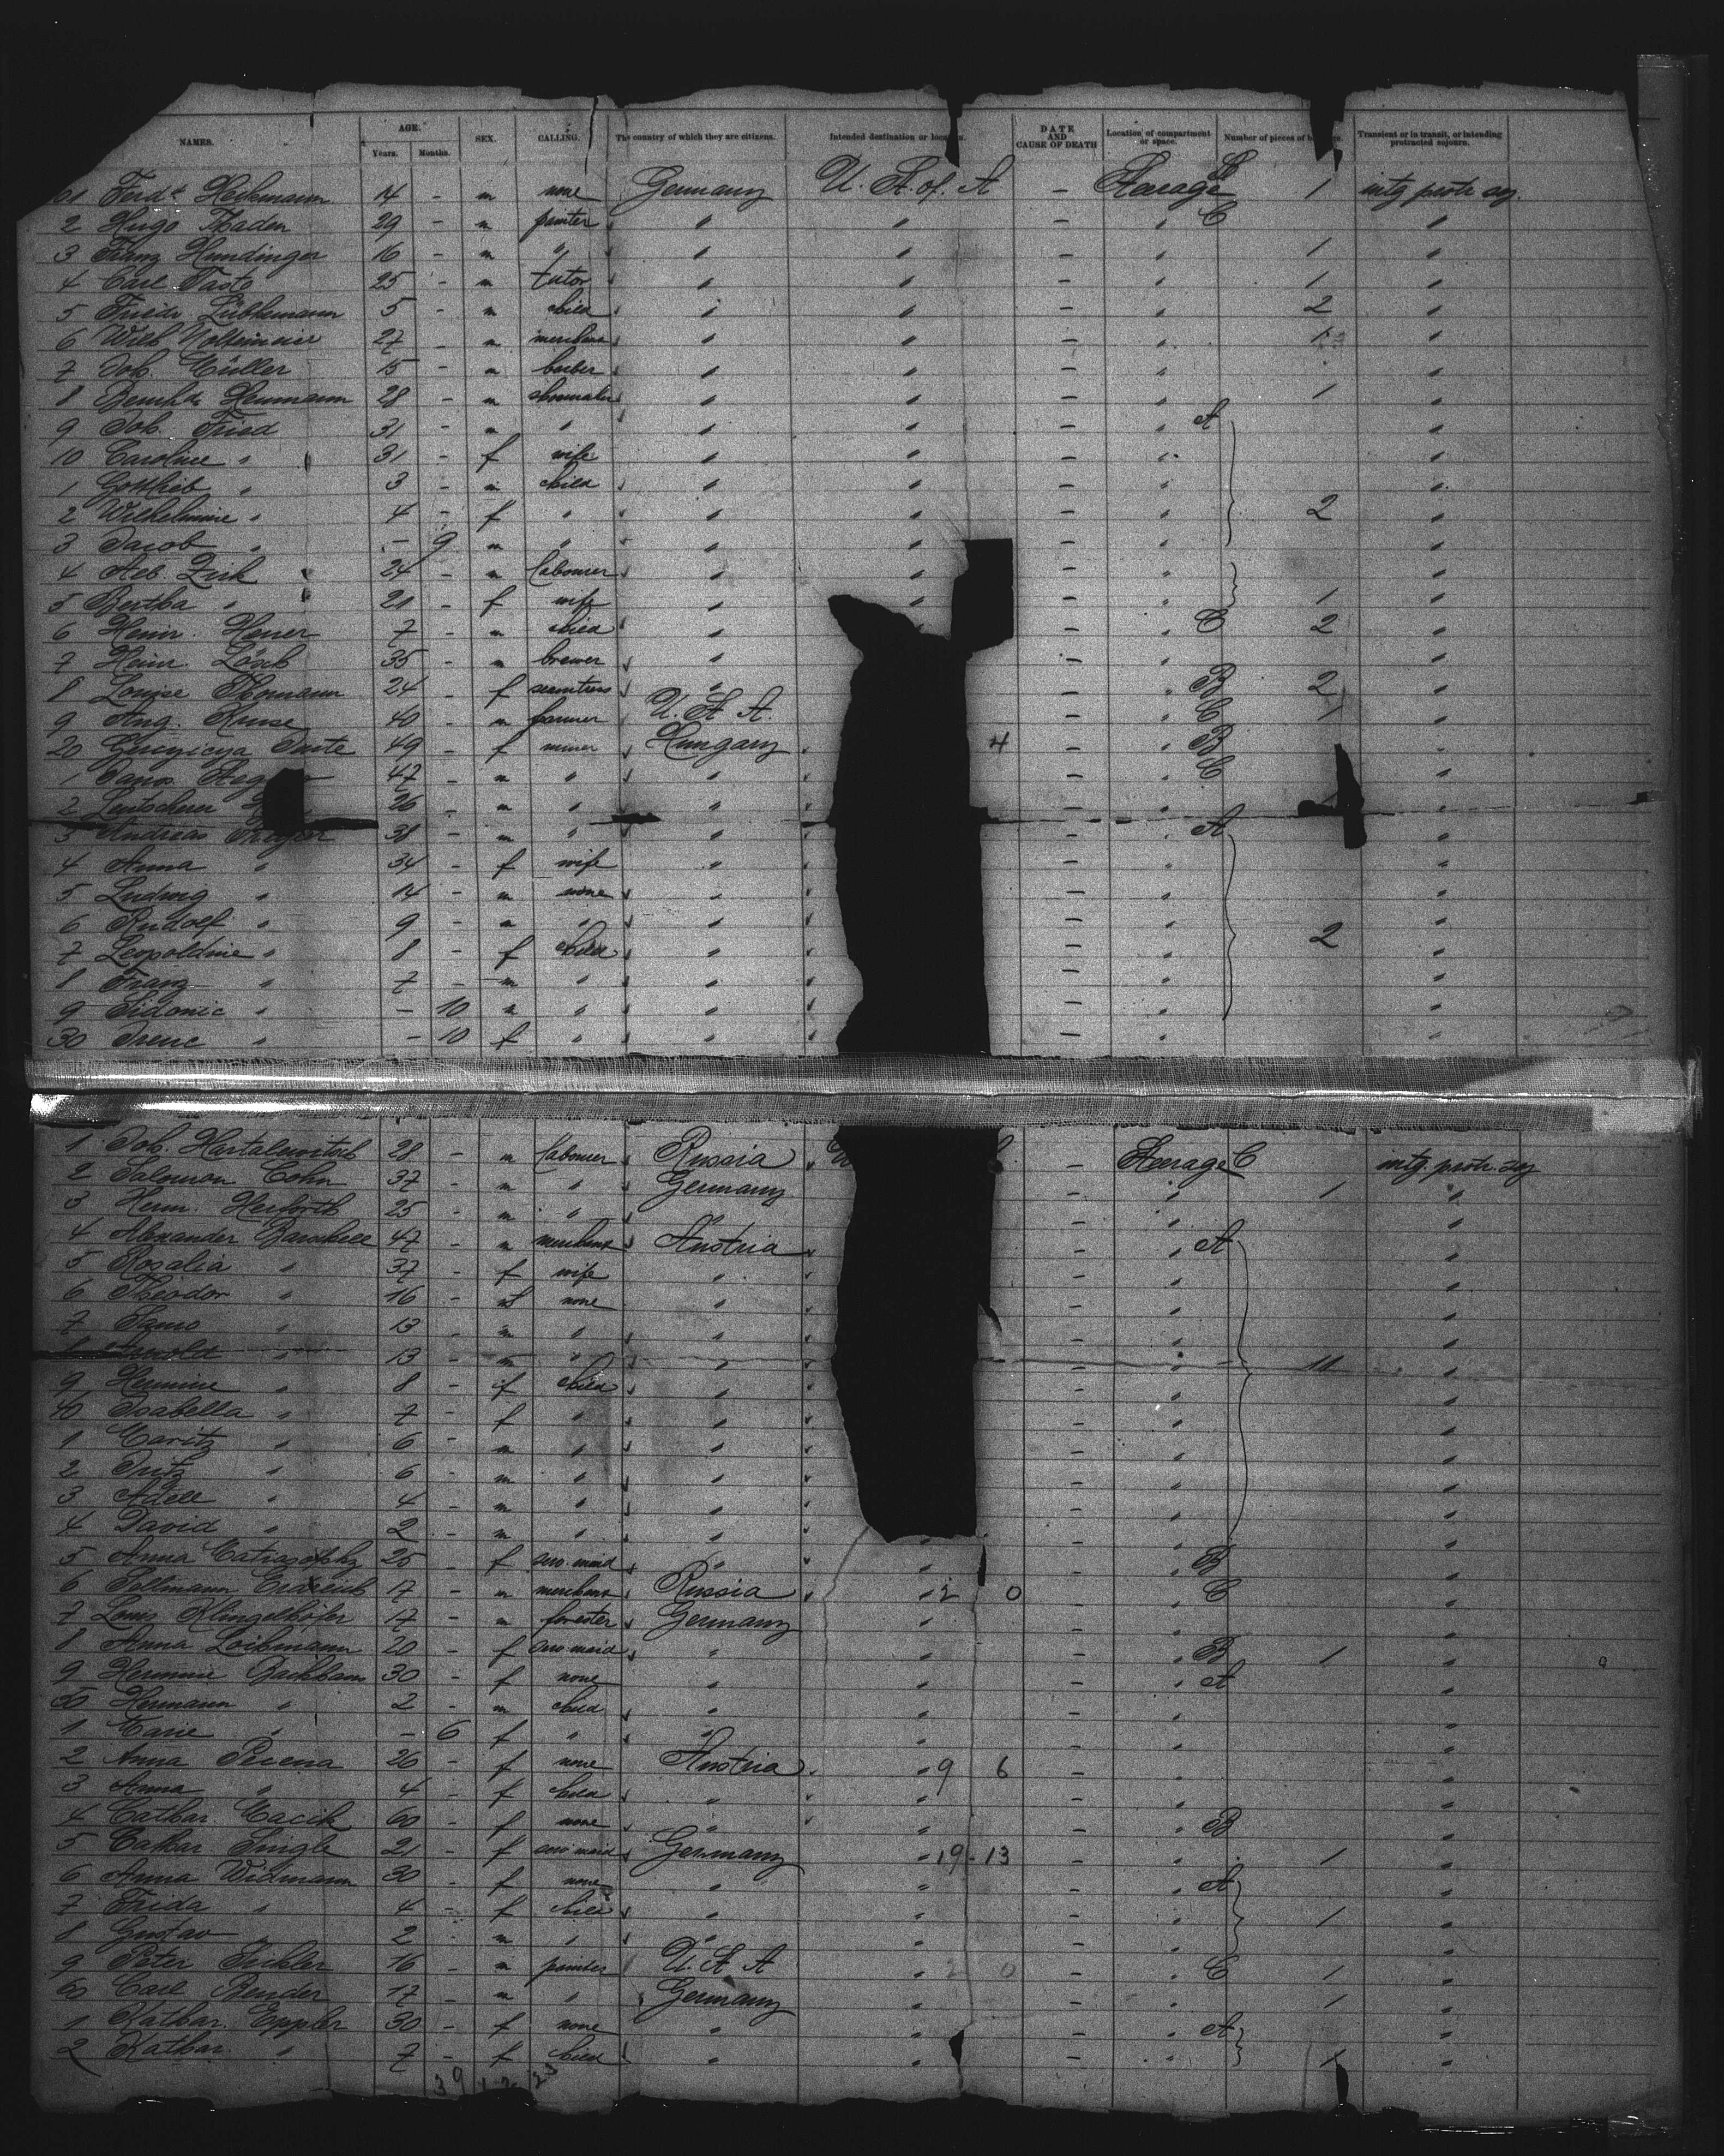 NAMES. AGE. Years. Months. SEX. CALLING. The country of which they are citizens. Intended destination or DATE AND CAUSE OF DEATH Location of compartment or space. Number of pieces of Transient or in transit, or intending protracted sojourn.
Ferd. Heckmann 14 - m none Germany U. S. of A - Steerage 1 intg protr soj.
2 Hugo Thaden 29 - m painter " " - " C "
3 Franz Hundinger 16 - m " " " - " 1 "
4 Carl Taste 25 - m tutor " " - " 1 "
5 Friedr Lübkemann 5 - m child " " - " 2 "
6 Wilh 27 - m merchant " " - "
7 Joh. Müller 15 - m barber " " - " "
8 Heumann 28 - m shoemaker " " - " 1 "
9 Joh. Fried 31 - m " " " - " A "
10 Caroline " 31 - f wife " " - " "
1 Gottlieb " 3 - m child " " - " "
2 Wilhelmine " 4 - f " " " - " 2 "
3 Jacob " - 9 m " " " - " "
4 Zirk 24 - m labourer " " - " "
5 Bertha " 21 - f wife " " - " 1 "
6 Heinr. 7 - m child " - " C 2 "
7 Heinr. Lösch 35 - m brewer " - " "
8 Louise Thomann 24 - f seamtress " - " B 2 "
9 Aug. Kruse 40 - m farmer U. S. A. - " C 1 "
20 49 - f miner Hungary 4 - " B "
1 Janos 47 - m " " - " C "
2 26 - m " " - " "
3 Andreas 38 - m " " - " A "
4 Anna " 34 - f wife " - " "
5 Ludwig " 14 - m none " - " "
6 Rudolf " 9 - m " " - " "
7 Leopoldine " 8 - f child " - " 2 "
8 Franz " 7 - m " " - " "
9 Sidonie " - 10 m " " - " "
30 Irene " - 10 f " " - " "
1 Joh. 28 - m labourer Russia - Steerage C intg. protr. soj
2 Salomon Cohn 37 - m " Germany - " 1 "
3 Herm. Herforth 25 - m " " - " "
4 Alexander 47 - m merchant Austria - " A "
5 Rosalia " 37 - f wife " - " "
6 Theodor " 16 - m none " - " "
7 " 13 - m " " - " "
8 Arnold " 13 - m " " - " 11 "
9 Hermine " 8 - f child " - " "
40 Isabella " 7 - f " " - " "
1 Moritz " 6 - m " " - " "
2 Fritz " 6 - m " " - " "
3 Adele " 4 - m " " - " "
4 David " 2 - m " " - " "
5 Anna 25 - f serv. maid " " - " B "
6 17 - m merchant Russia " 2 0 - " C "
7 Louis Klingelhöfer 17 - m forester Germany " - " "
8 Anna Loibmann 20 - f serv. maid " " - " B 1 "
9 Hermine Backhaus 30 - f none " " - " A "
50 Hermann " 2 - m child " " - " "
1 Marie " - 6 f " " " - " "
2 Anna 26 - f none Austria " 9 6 - " "
3 Anna " 4 - f child " " - " "
4 Cathar. Macik 60 - f none " " - " B "
5 Cathar Single 21 - f serv maid Germany " 19 - 13 - " 1 "
6 Anna Widmann 30 - f none " " - " A "
7 Frida " 4 - f child " " - " 1 "
8 Gustav " 2 - m " " " - " "
9 Peter 16 - m painter U. S. A " 2 0 - " C 1 "
60 Carl Bender 17 - m " Germany " - " 1 "
1 Kathar. Eppler 30 - f none " " - " A "
2 Kathar. " 7 - f child " " - " 1 "
39